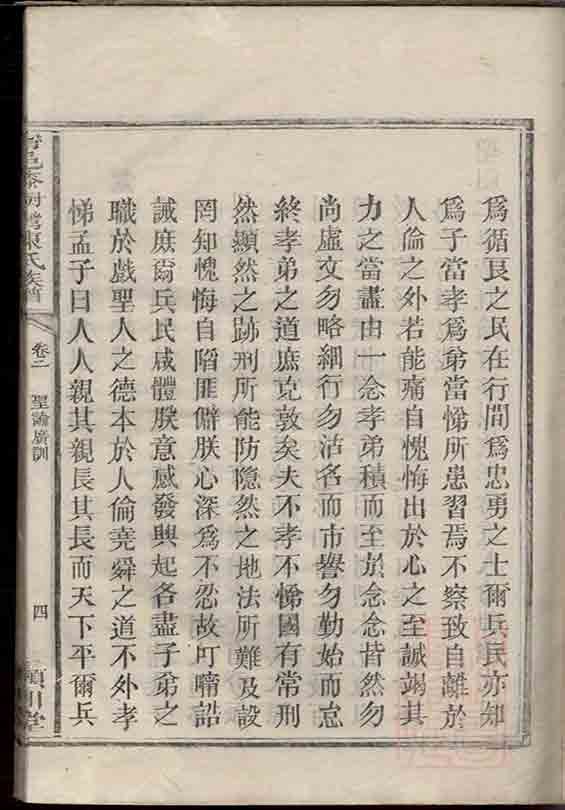 爲循良之民在行間爲忠勇之士爾兵民亦知
爲子當孝爲弟當悌所患習焉不察致自離於
人倫之外若能痛自愧悔出於心之至誠竭其
力之當盡由一念孝弟積而至於念念皆然勿
尚虛文勿略細行勿沽名而市譽勿勤始而怠
終孝弟之道庶克敦矣夫不孝不悌國有常刑
然顯然之跡刑所能防隱然之地法所難及設
罔知愧悔自陷匪僻朕心深爲不忍故叮嚀誥
誡庶爾兵民咸體朕意感發興起各盡子弟之
職於戲聖人之德本於人倫堯舜之道不外孝
悌孟子曰人人親其親長其長而天下平爾兵
陳氏族譜
卷二 聖諭廣訓
四
潁川堂